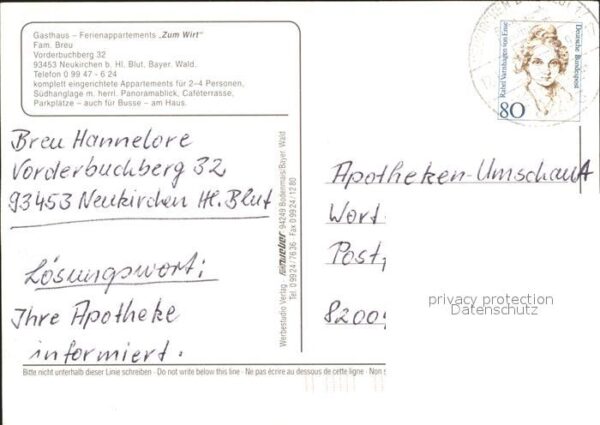 Gasthaus – Ferienappartements „Zum Wirt“
Fam. Breu
Vorderbuchberg 32
93453 Neukirchen b. Hl. Blut. Bayer. Wald.
Telefon 0 99 47 - 6 24
komplett eingerichtete Appartements für 2–4 Personen,
Südhanglage m. herrl. Panoramablick, Caféterrasse,
Parkplätze – auch für Busse – am Haus.
Breu Hannelore
Vorderbuchberg 32
93453 Neukirchen Hl. Blut
Lösungswort:
Ihre Apotheke
informiert.
Werbestudio Verlag 94249 Bodenmais/Bayer. Wald
Tel. 0 99 24 / 76 36 · Fax 0 99 24 / 12 80
Rahel Varnhagen von Ense
Deutsche Bundespost
80
Apotheken-Umschau A
Wort
Post
8200
privacy protection
Datenschutz
Bitte nicht unterhalb dieser Linie schreiben · Do not write below this line · Ne pas écrire au dessous de cette ligne · Non s